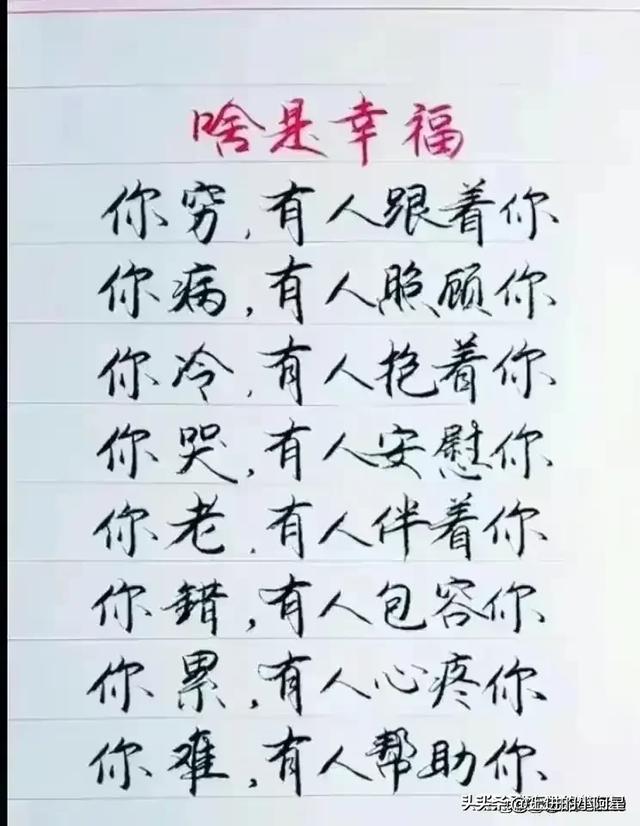 啥是幸福
你穷,有人跟着你
你病,有人照顾你
你冷,有人抱着你
你哭,有人安慰你
你老,有人伴着你
你錯,有人包容你
你累,有人心疼你
你难,有人帮助你
头条